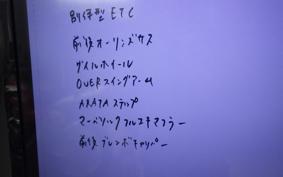 別体型ETC
前後オーリンズサス
ゲイルホイール
OVERスイングアーム
AKATAステップ
マーベリックフルエキマフラー
前後ブレンボキャリパー